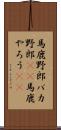 馬鹿野郎バカ
野郎 馬鹿
やろう